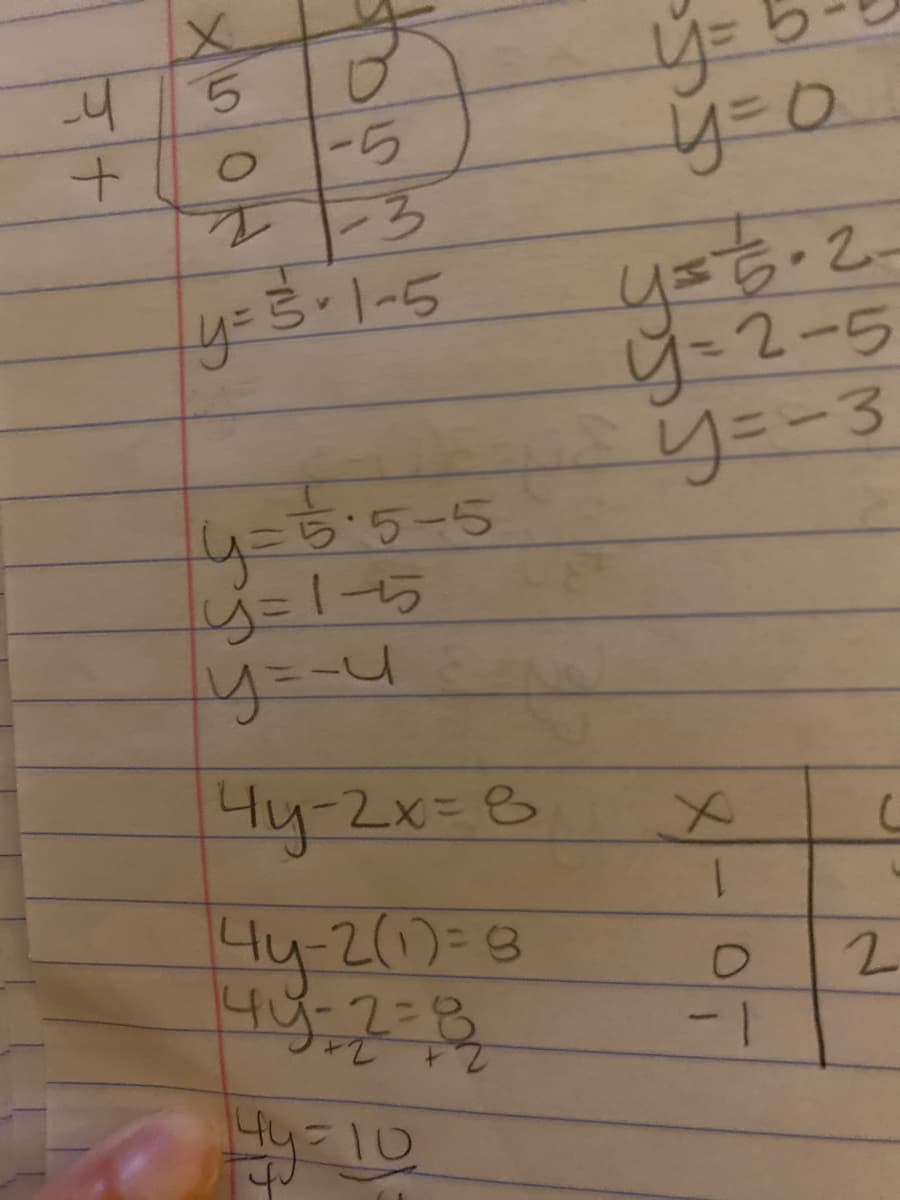 x | y
-4 5 | 0
+ 0 | -5
2 | -3
y=1/5·1-5
y=5-5
y=0
y=1/5·2-
y=2-5
y=-3
y=1/5·5-5
y=1-5
y=-4
4y-2x=8
4y-2(1)=8
4y-2=8
+2 +2
4y=10
4
x |
1 |
0 | 2
-1 |